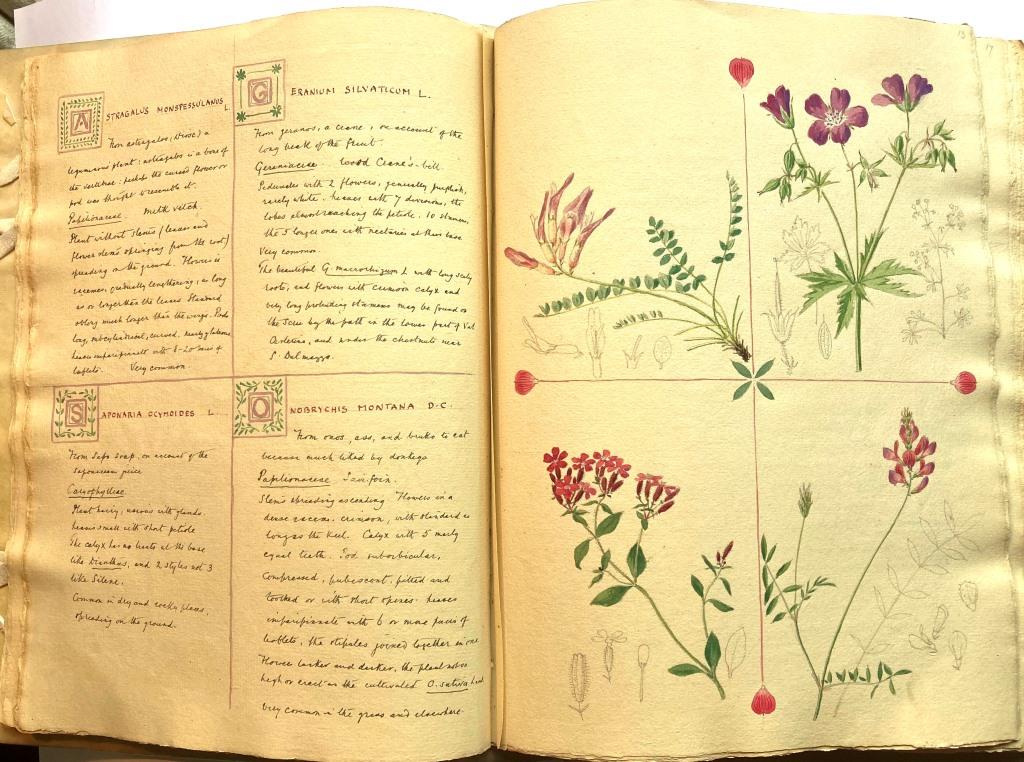 ASTRAGALUS MONSPESSULANUS L.
From astragalos, (Diosc) a
leguminous plant: astragalos is a bone of
the vertebrae: perhaps the curved flower or
pod was thought to resemble it.
Papilionaceae. Milk vetch.
Plant without stems (leaves and
flower stems springing from the root)
spreading on the ground. Flowers in
racemes, gradually lengthening, as long
as or longer than the leaves. Standard
oblong much longer than the wings. Pods
long, subcylindrical, curved, nearly glabrous
leaves imparipinnate with 8-20 pairs of
leaflets. Very common.
GERANIUM SILVATICUM L.
From geranos, a crane, on account of the
long beak of the fruit.
Geraniaceae. Wood Crane's-bill.
Peduncles with 2 flowers, generally purplish,
rarely white. Leaves with 7 divisions, the
lobes almost reaching the petiole. 10 stamens,
the 5 longer ones with nectaries at their base
Very common.
The beautiful G. macrorhizum L with long scaly
roots, and flowers with crimson calyx and
very long protruding stamens may be found on
the scree by the path in the lower part of Val
and under the chestnuts near
S. Dalmazzo.
SAPONARIA OCYMOIDES L.
From Sapo soap, on account of the
saponaceous juice
Caryophylleae.
Plant hairy, viscous with glands.
Leaves small with short petiole
The calyx has no bracts at the base
like Dianthus, and 2 styles not 3
like Silene.
Common in dry and rocky places,
spreading on the ground.
ONOBRYCHIS MONTANA D.C.
From onos, ass, and bruko to eat
because much liked by donkeys
Papilionaceae Sainfoin.
Stems spreading ascending. Flowers in a
dense raceme, crimson, with standard as
long as the keel. Calyx with 5 nearly
equal teeth. Pod suborbicular,
compressed, pubescent, pitted and
toothed or with short spines. Leaves
imparipinnate with 6 or more pairs of
leaflets, the stipules joined together in one
Flower larker and darker, the plant not so
high or erect as the cultivated O. sativa
Very common in the grass and elsewhere.
13
17